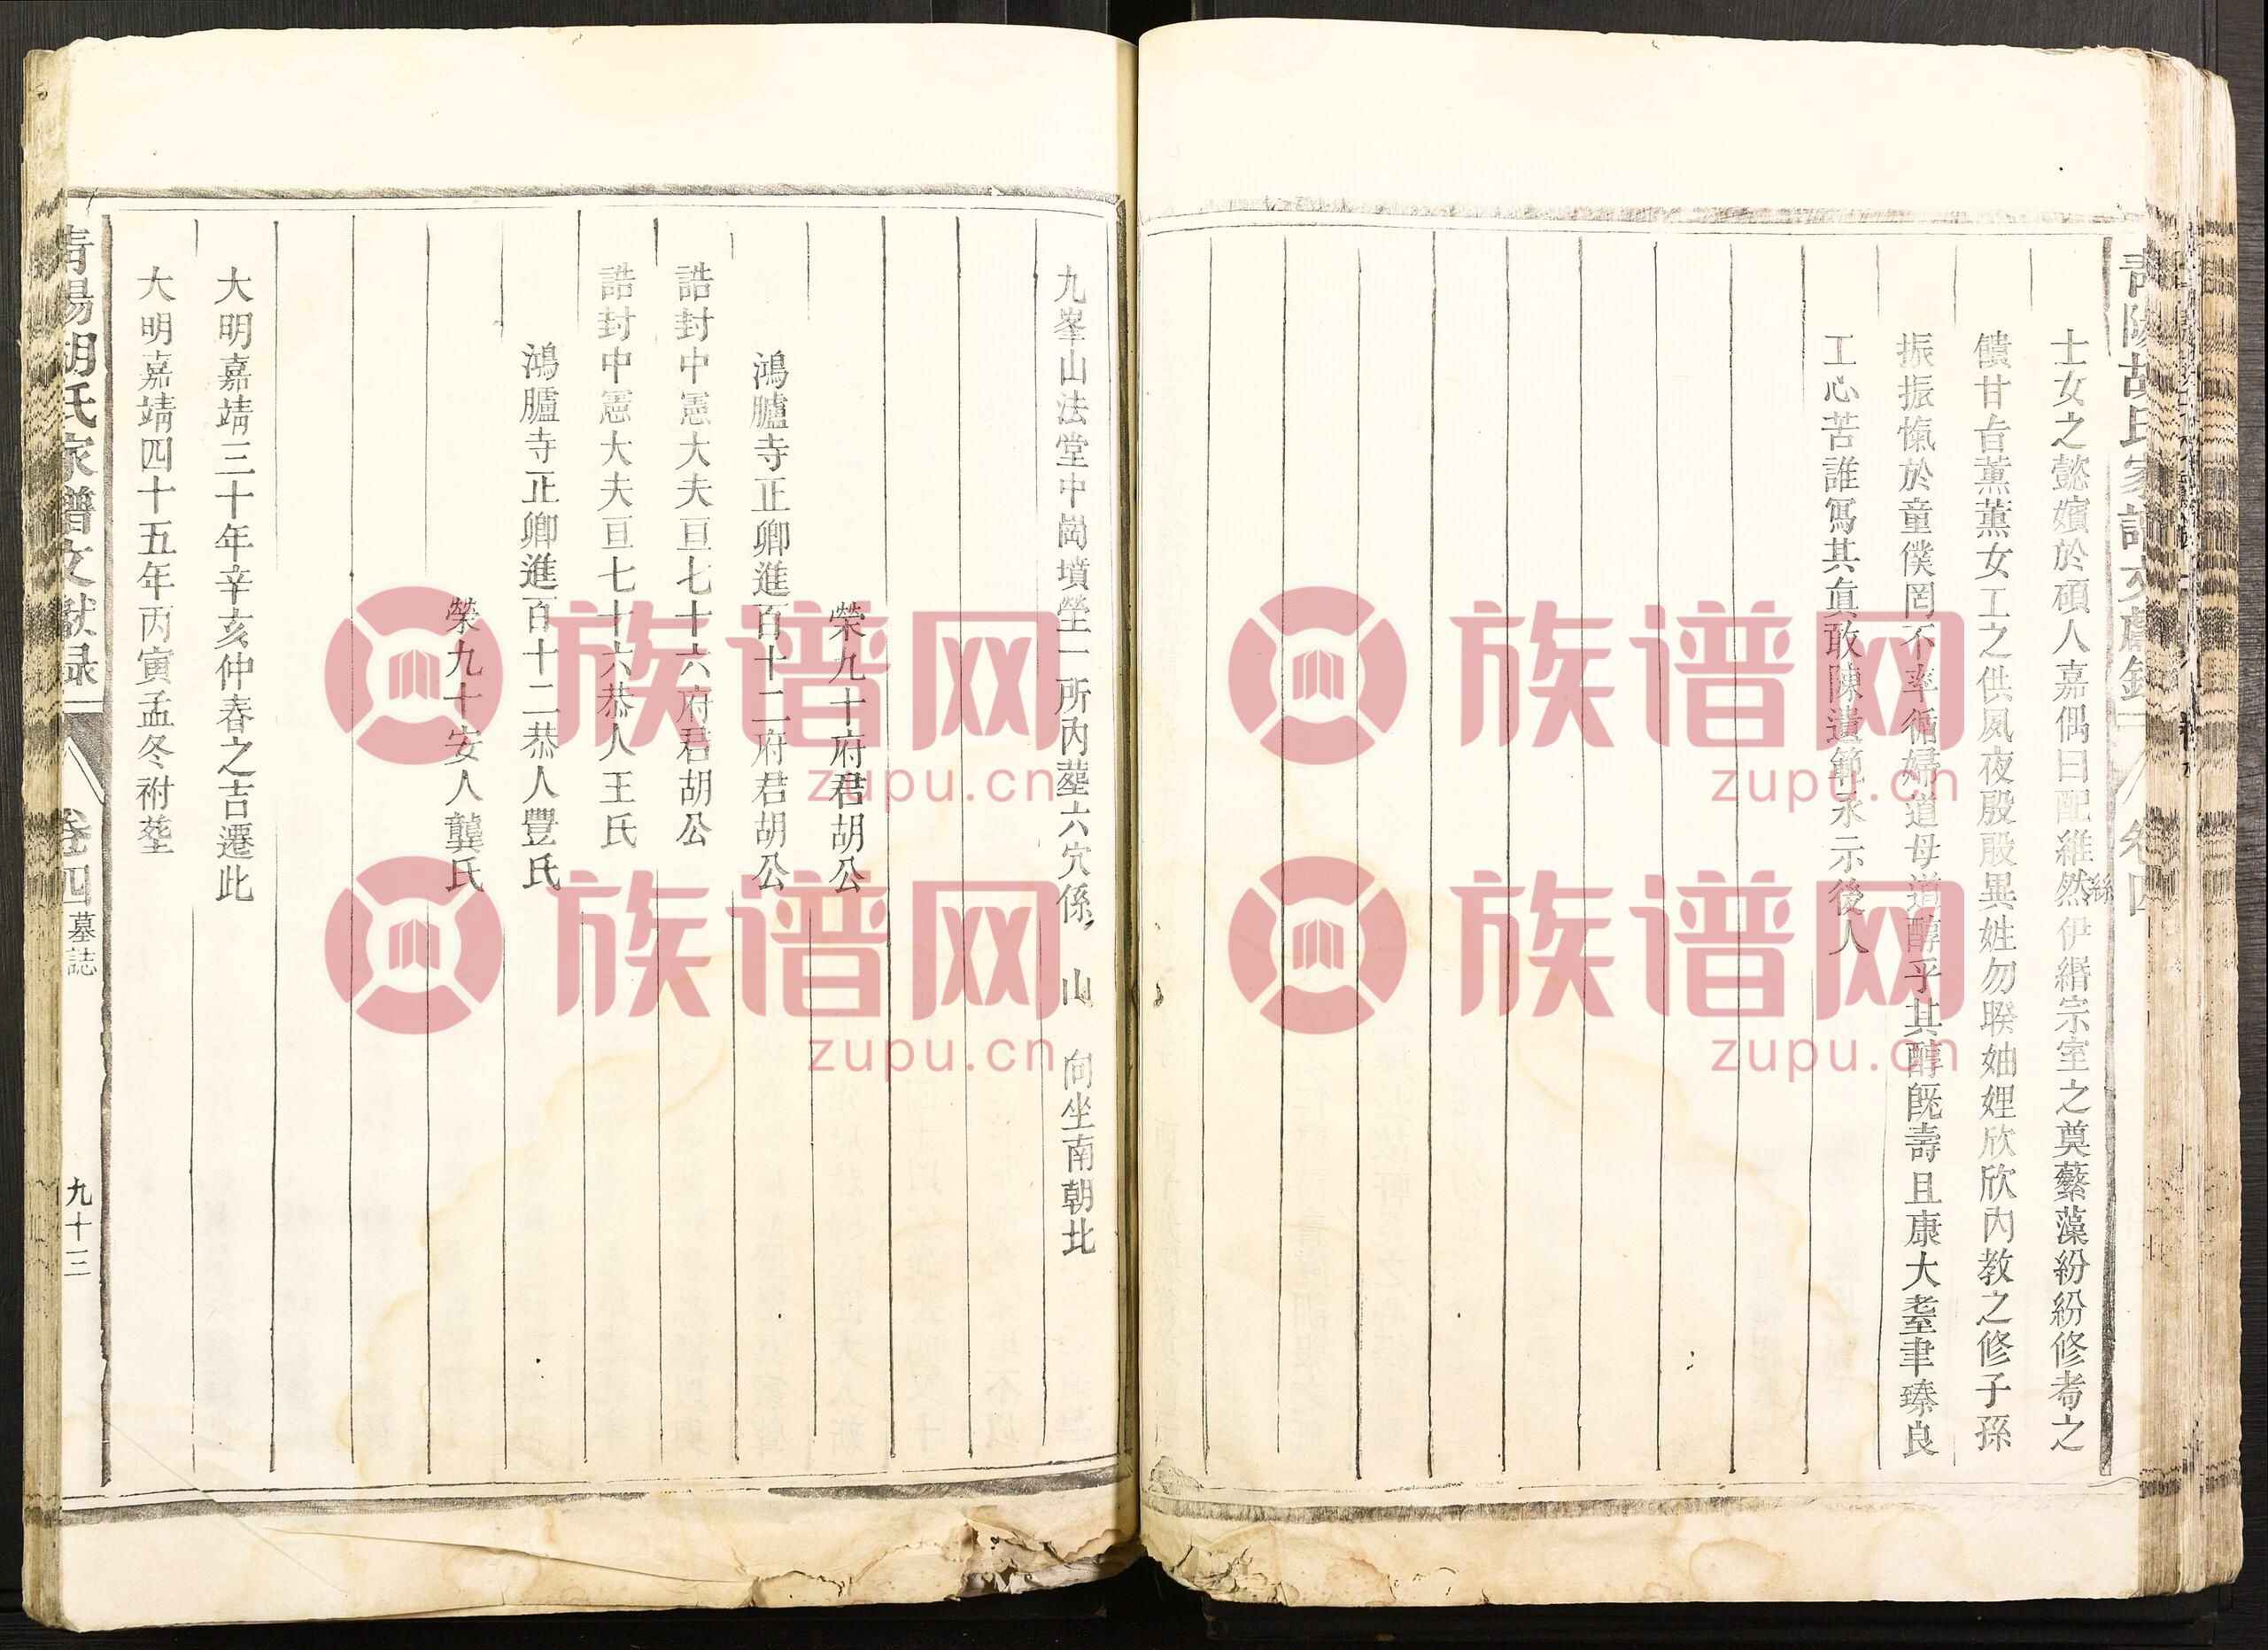 青陽胡氏家譜文獻錄 卷四
士女之懿嬪於碩人嘉偶曰配維然伊緡宗室之奠蘩藻紛紛修耈之
孫
饋甘旨薰薰女工之供夙夜殷殷異姓勿睽妯娌欣欣內教之修子孫
振振愾於童僕罔不率循婦道母道醇乎其醇旣壽且康大耋聿臻良
工心苦誰寫其眞敢陳遺範永示後人
九峯山法堂中崗墳塋一所內塟六穴係 山 向坐南朝北
榮九十府君胡公
鴻臚寺正卿進百十二府君胡公
誥封中憲大夫亘七十六府君胡公
誥封中憲大夫亘七十六恭人王氏
鴻臚寺正卿進百十二恭人豐氏
榮九十安人龔氏
大明嘉靖三十年辛亥仲春之吉遷此
大明嘉靖四十五年丙寅孟冬祔塟
青陽胡氏家譜文獻錄 卷四 墓誌 九十三
族谱网
zupu.cn
族谱网
zupu.cn
族谱网
zupu.cn
族谱网
zupu.cn